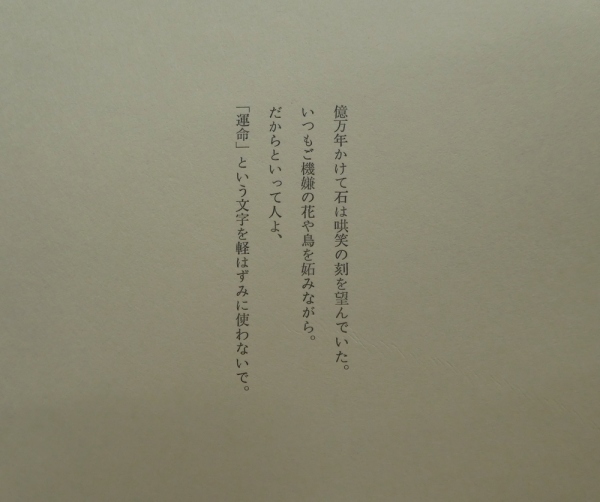 億万年かけて石は哄笑の刻を望んでいた。
いつもご機嫌の花や鳥を妬みながら。
だからといって人よ、
「運命」という文字を軽はずみに使わないで。